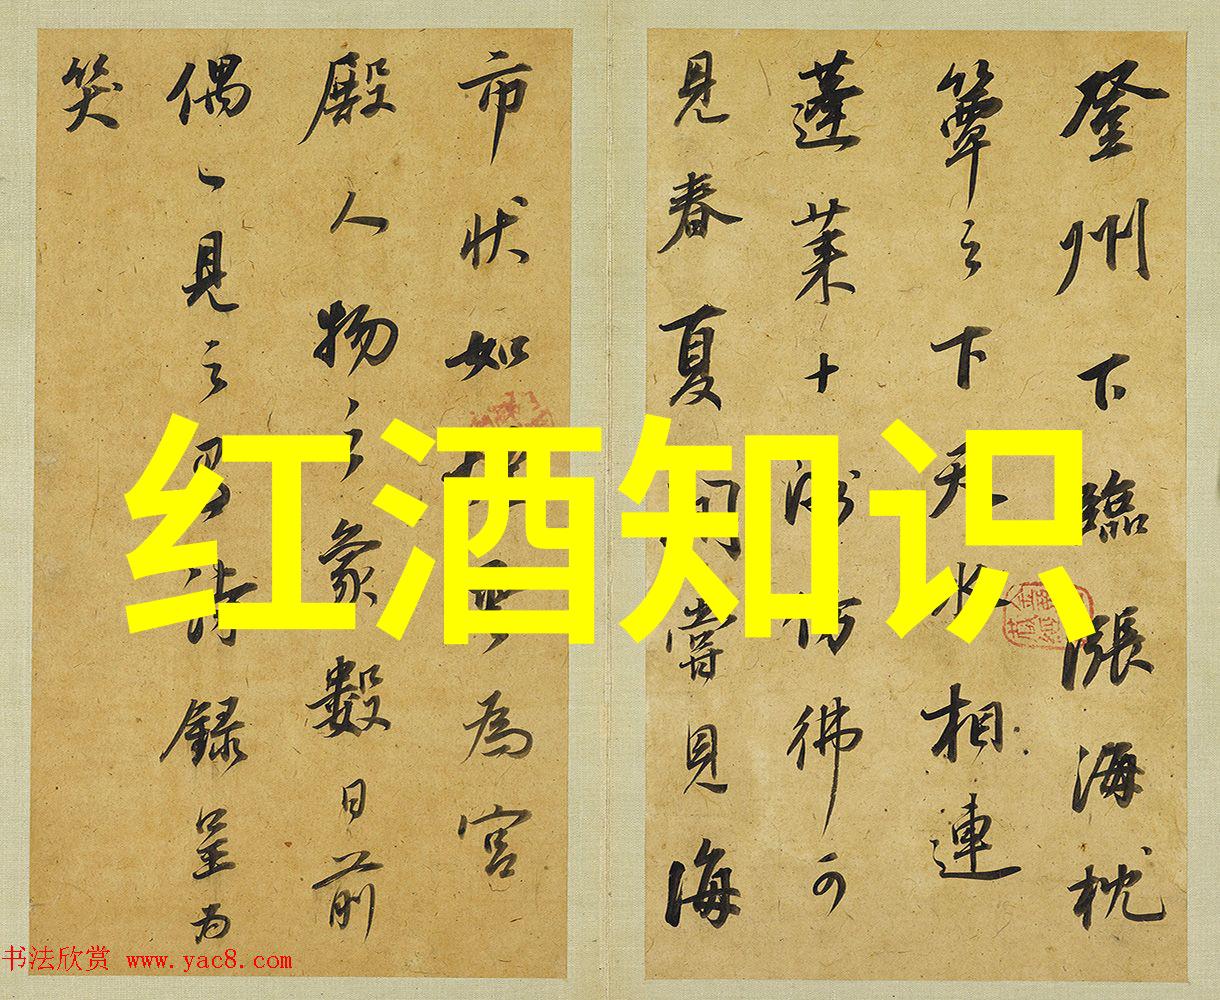 登州下臨漲海枕
簟之下天水相連
蓬莱十洲仿彿可
見春夏間嘗見海
市状如為宮
殿人物之象數日前
偶見之詩録呈為
笑
红酒知识
书法欣赏 www.yac8.com